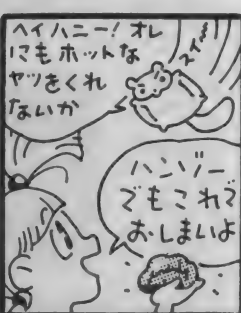 ヘイハニー！オレ
にもホットな
ヤツをくれ
ないか
ハンゾー
でもこれで
おしまいよ